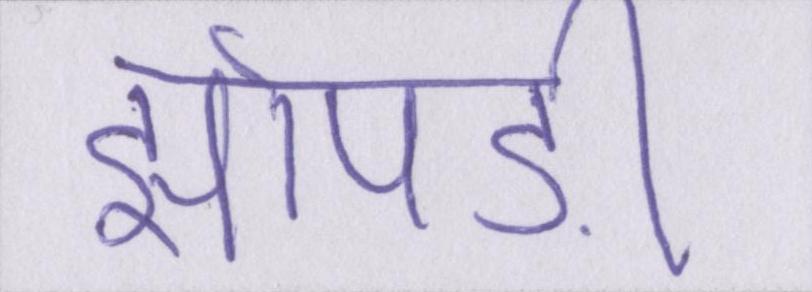 झोपड़ी